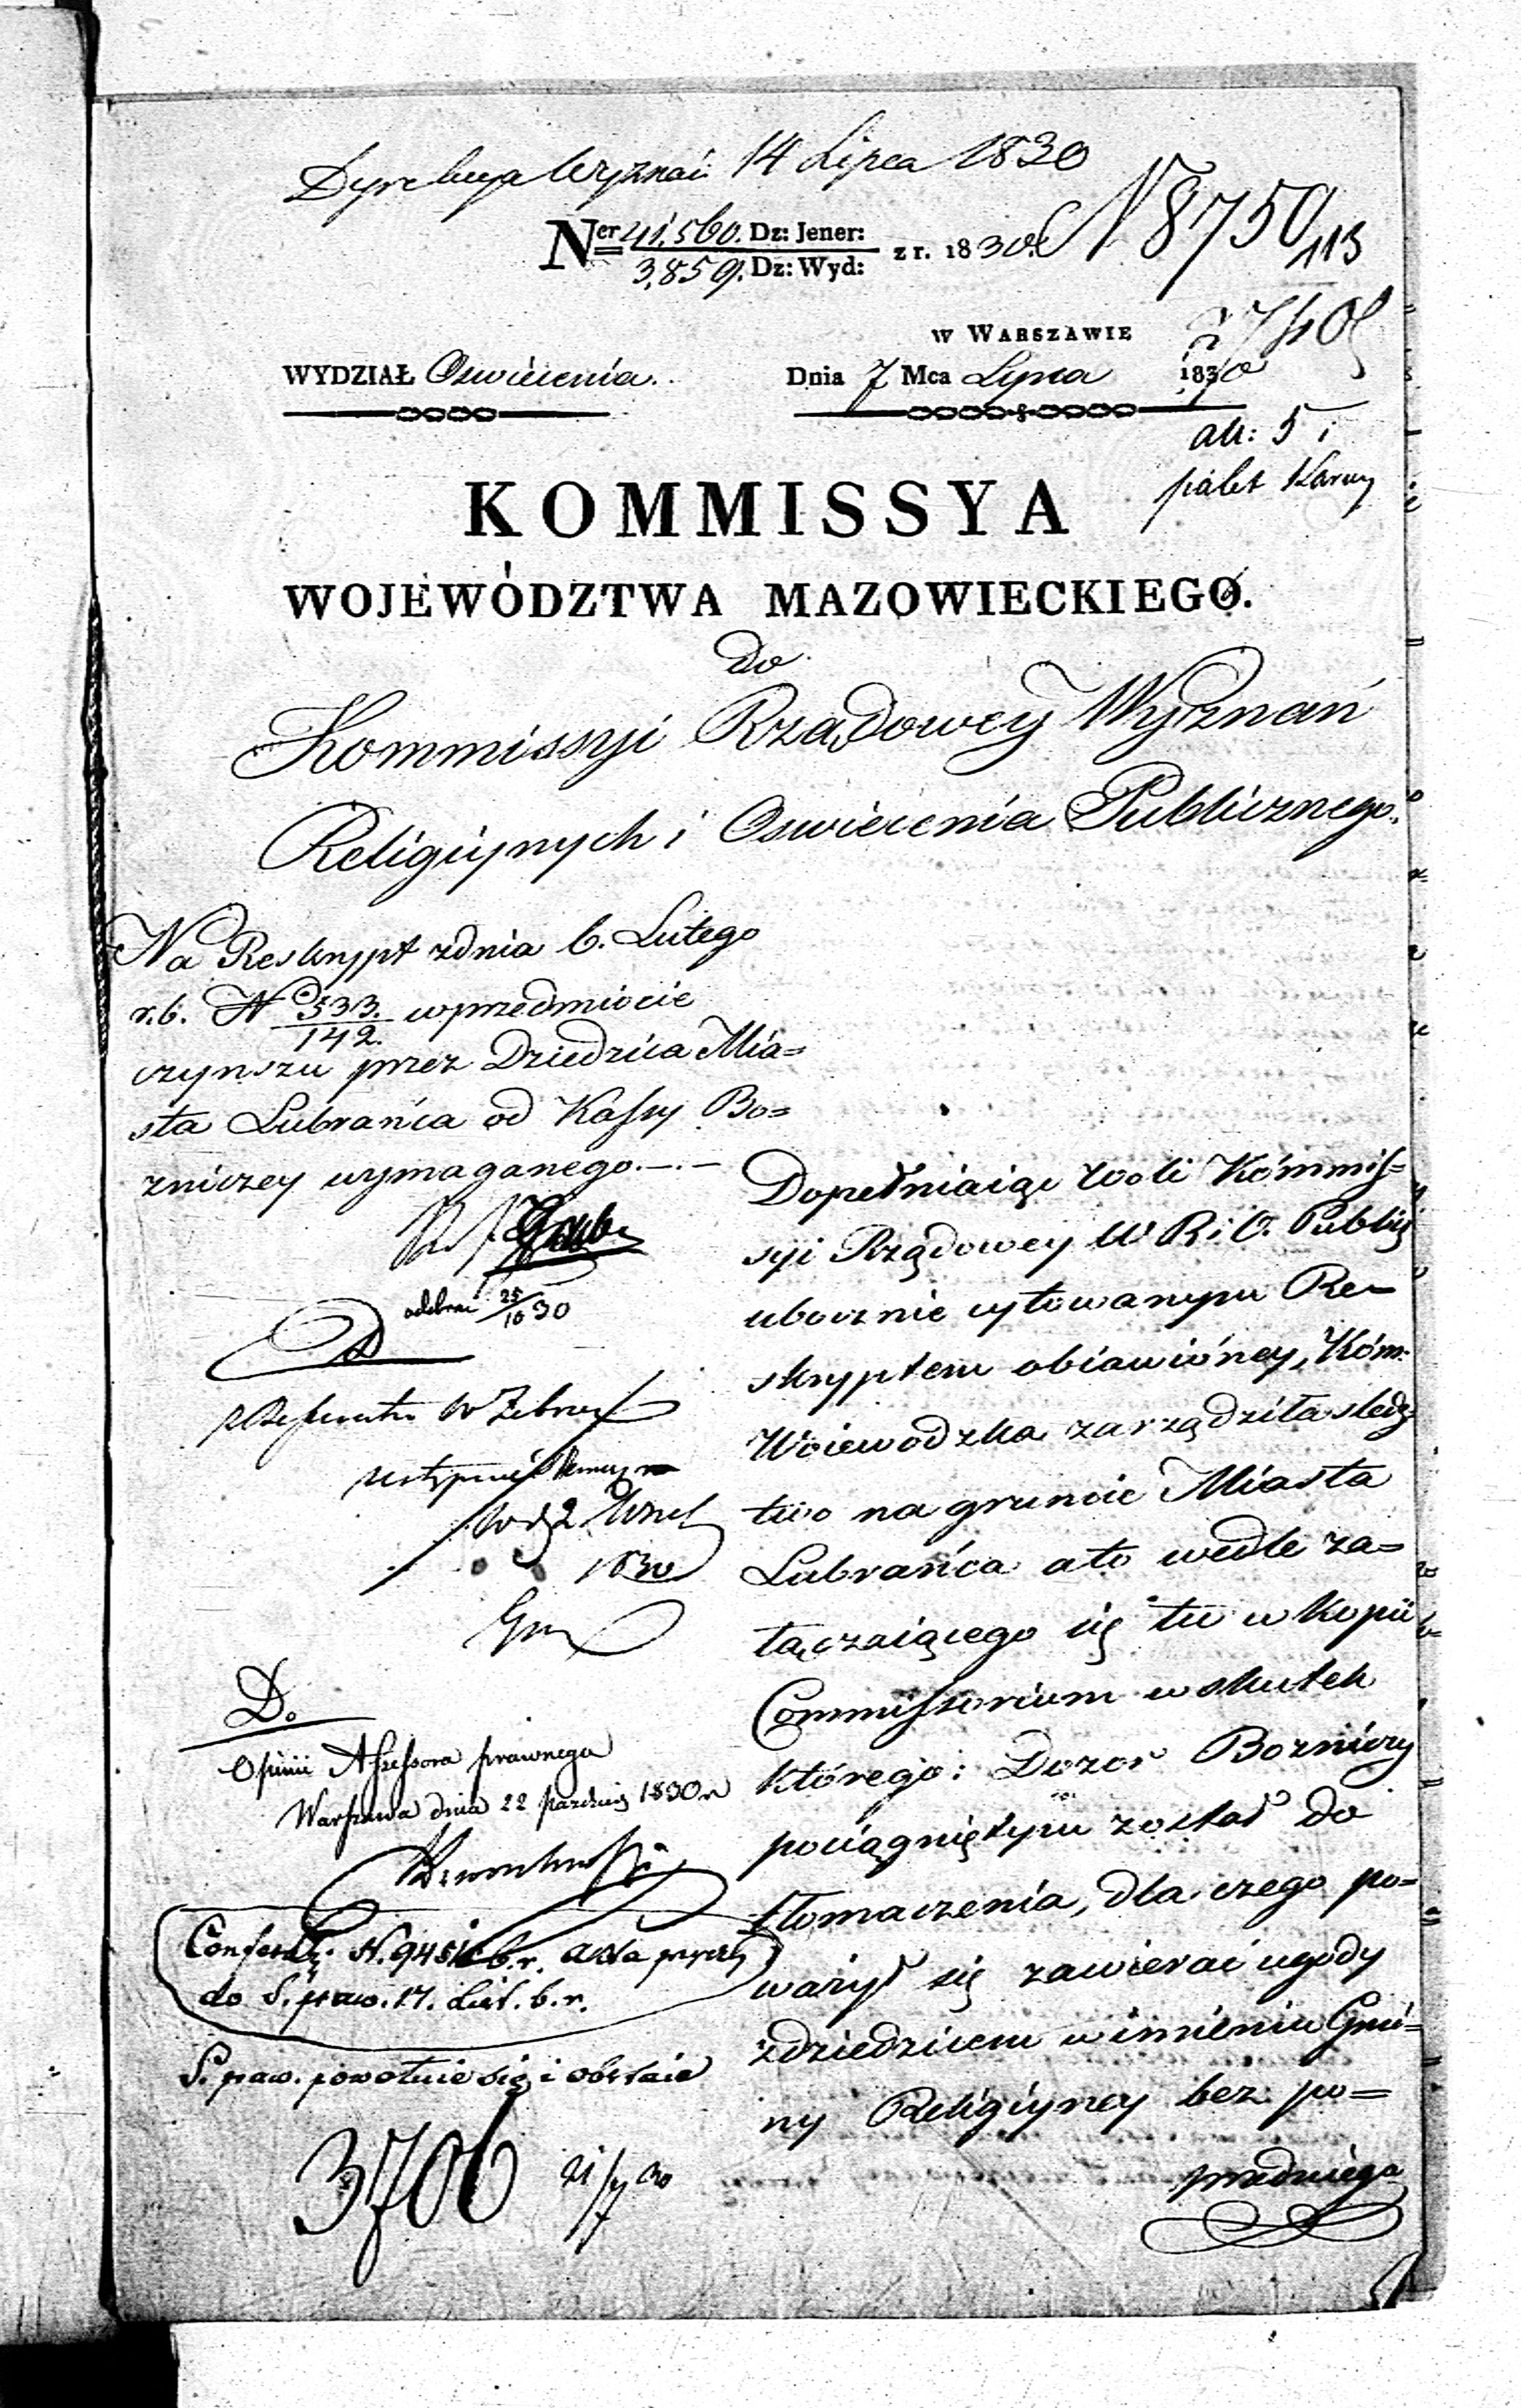 Dyrekcya Wyznań 14 Lipca 1830
N 8750/113
Ner 41,560. Dz: Jener: z r. 1830.
3,859. Dz: Wyd:
w Warszawie
WYDZIAŁ Oswiecenia.
Dnia 7 Mca Lipca 1830
KOMMISSYA
WOJEWÓDZTWA MAZOWIECKIEGO.
do
Kommissyi Rządowey Wyznań
Religiynych i Oswiecenia Publicznego.
Na Reskrypt zdnia 6. Lutego
r.b. No 533./142. wprzedmiocie
czynszu przez Dziedzica Mia=
sta Lubrańca od Kassy Bo=
zniczey wymaganego.—.—
odebrał 25/10 30
Do
Opinii Assessora prawnego
Warszawa dnia 22 1830 r
do S. praw. 17. List. b.r.
S. praw. powołuie się i
3706 21/7 30
Dopełniaiąc woli Kómmis=
syi Rządowey W R i O. Publi
ubocznie cytowanym Re=
skryptem obiawióney, Kóm:
Woiewodzka zarządziła sledz
two na gruncie Miasta
Lubrańca a to wedle za=
łączaiącego się tu w kopii
Commissorium w skutek
którego: Dozor Bozniczy
pociągniętym został do
tłomaczenia, dla czego po=
ważył się zawierać ugody
zdziedzicem w imieniu Gmi=
ny Religiyney bez po=
przedniego